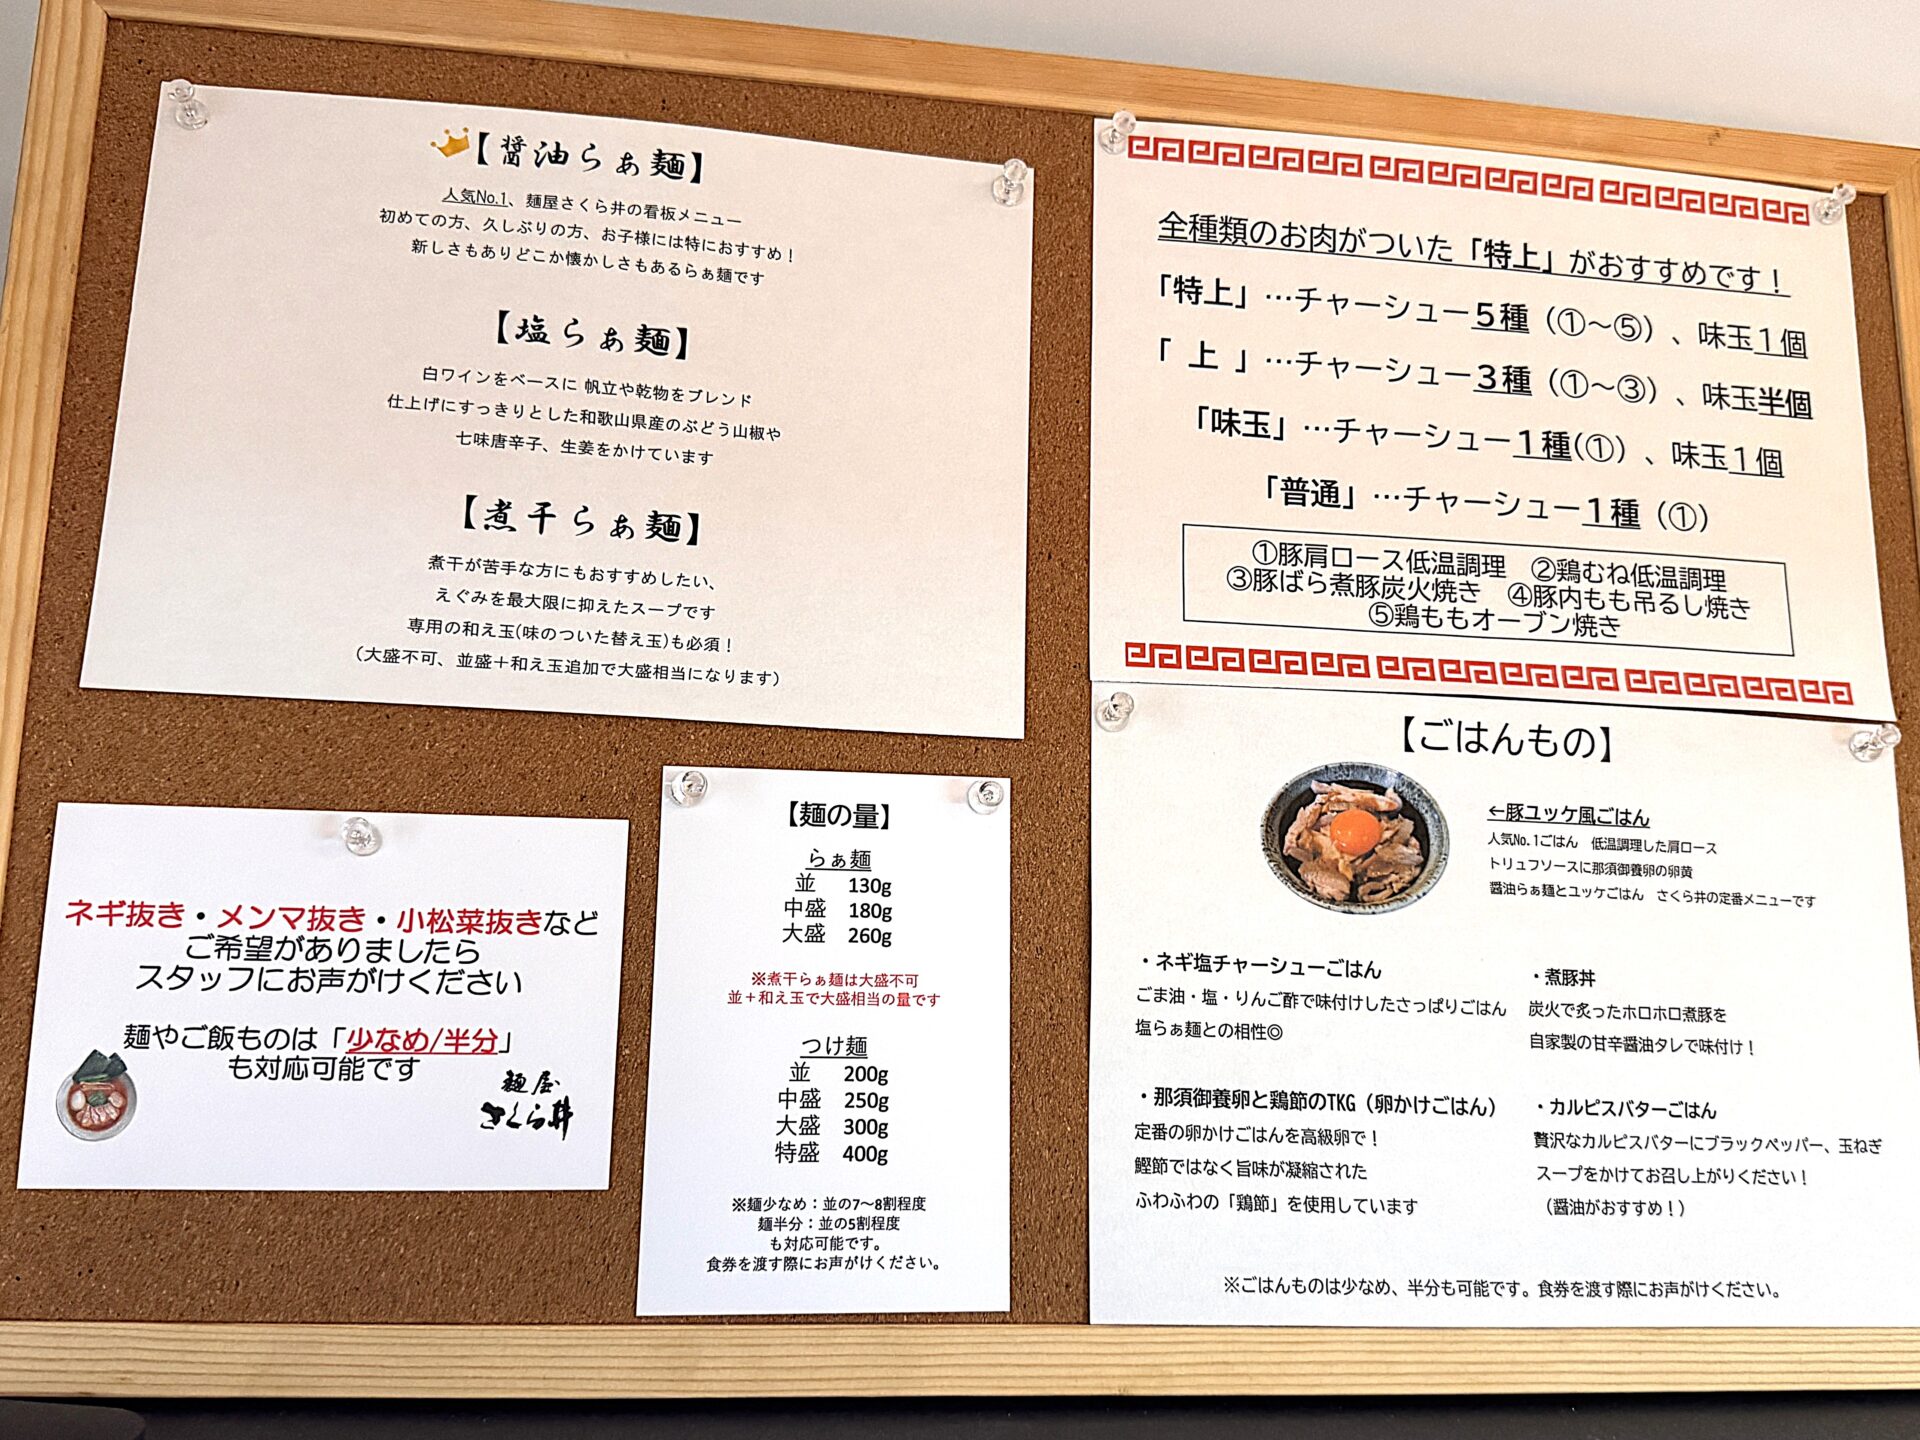 【醤油らぁ麺】
人気No.1、麺屋さくら井の看板メニュー
初めての方、久しぶりの方、お子様には特におすすめ！
新しさもありどこか懐かしさもあるらぁ麺です
【塩らぁ麺】
白ワインをベースに 帆立や乾物をブレンド
仕上げにすっきりとした和歌山県産のぶどう山椒や
七味唐辛子、生姜をかけています
【煮干らぁ麺】
煮干が苦手な方にもおすすめしたい、
えぐみを最大限に抑えたスープです
専用の和え玉(味のついた替え玉)も必須！
（大盛不可、並盛＋和え玉追加で大盛相当になります）
全種類のお肉がついた「特上」がおすすめです！
「特上」…チャーシュー５種（①～⑤）、味玉１個
「 上 」…チャーシュー３種（①～③）、味玉半個
「味玉」…チャーシュー１種(①）、味玉１個
「普通」…チャーシュー１種（①）
①豚肩ロース低温調理　②鶏むね低温調理
③豚ばら煮豚炭火焼き　④豚内もも吊るし焼き
⑤鶏ももオーブン焼き
ネギ抜き・メンマ抜き・小松菜抜きなど
ご希望がありましたら
スタッフにお声がけください
麺やご飯ものは「少なめ/半分」
も対応可能です
麺屋
さくら井
【麺の量】
らぁ麺
並　130g
中盛　180g
大盛　260g
※煮干らぁ麺は大盛不可
並＋和え玉で大盛相当の量です
つけ麺
並　200g
中盛　250g
大盛　300g
特盛　400g
※麺少なめ：並の7～8割程度
麺半分：並の5割程度
も対応可能です。
食券を渡す際にお声がけください。
【ごはんもの】
←豚ユッケ風ごはん
人気No.1ごはん　低温調理した肩ロース
トリュフソースに那須御養卵の卵黄
醤油らぁ麺とユッケごはん　さくら井の定番メニューです
・ネギ塩チャーシューごはん
ごま油・塩・りんご酢で味付けしたさっぱりごはん
塩らぁ麺との相性◎
・煮豚丼
炭火で炙ったホロホロ煮豚を
自家製の甘辛醤油タレで味付け！
・那須御養卵と鶏節のTKG（卵かけごはん）
定番の卵かけごはんを高級卵で！
鰹節ではなく旨味が凝縮された
ふわふわの「鶏節」を使用しています
・カルピスバターごはん
贅沢なカルピスバターにブラックペッパー、玉ねぎ
スープをかけてお召し上がりください！
（醤油がおすすめ！）
※ごはんものは少なめ、半分も可能です。食券を渡す際にお声がけください。